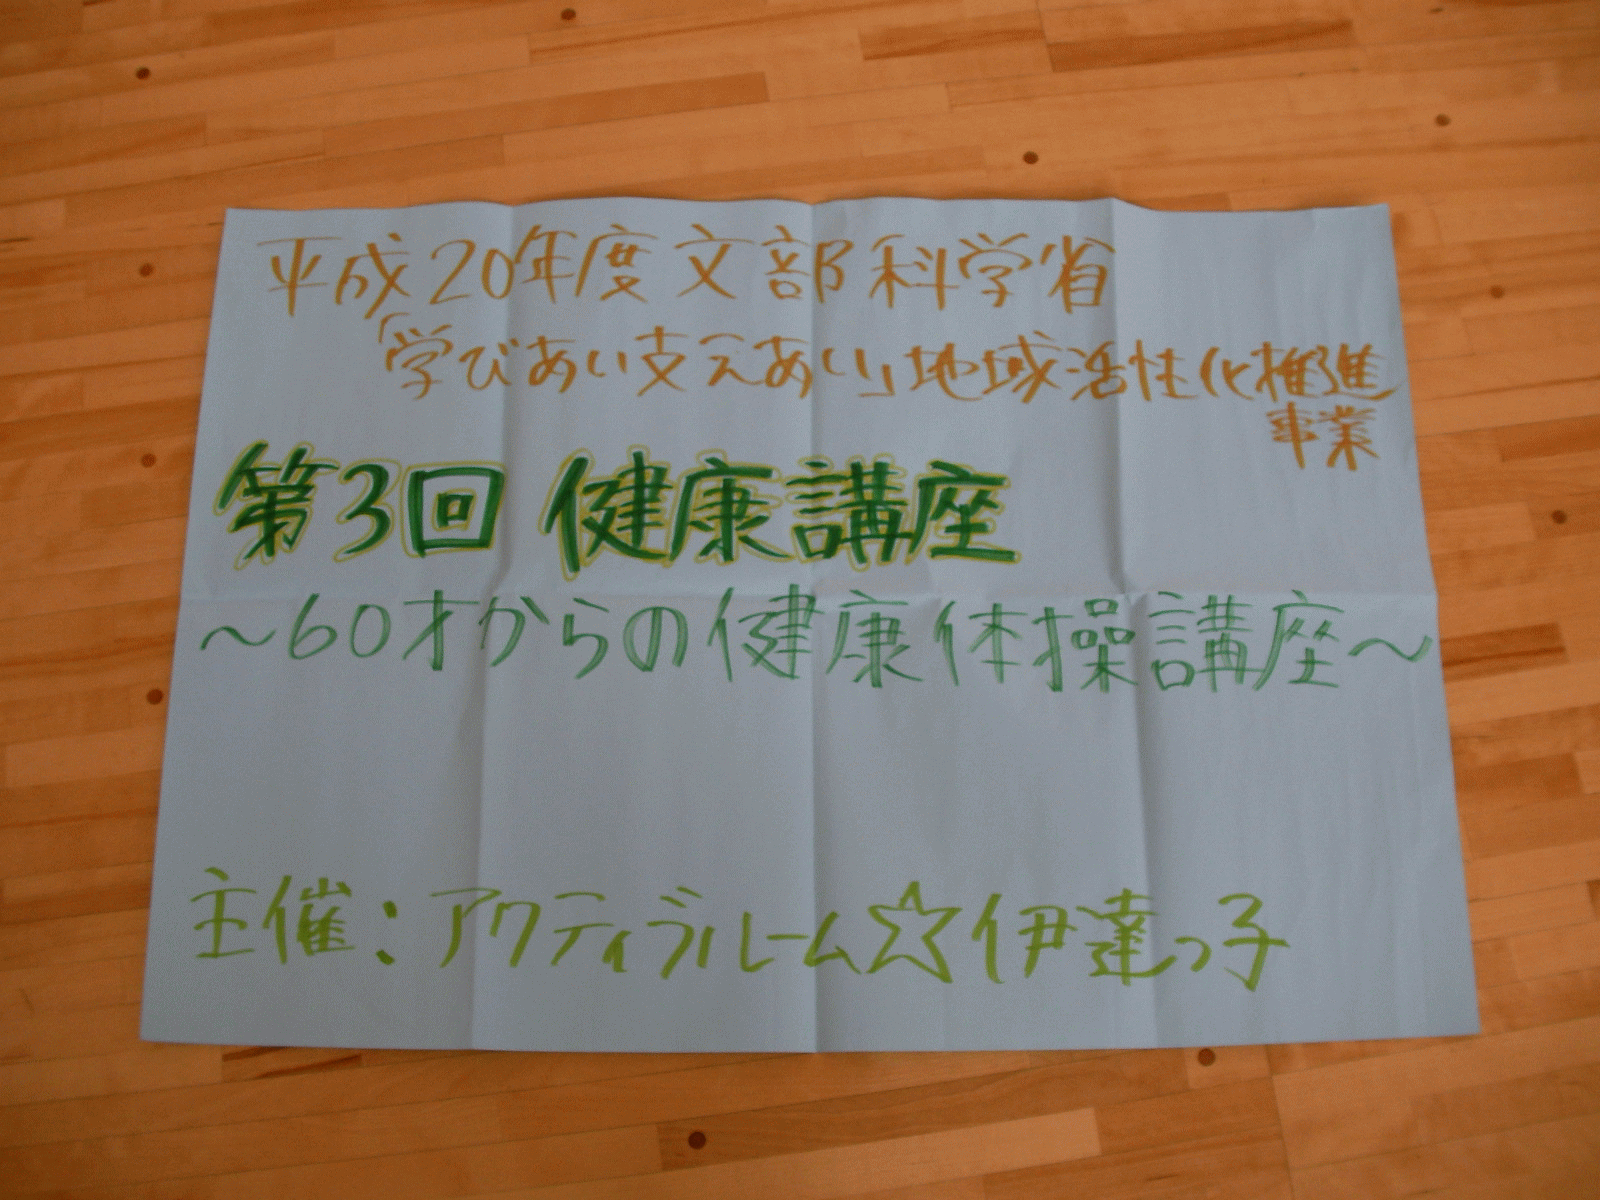 平成20年度文部科学省
「学びあい支えあい」地域活性化推進
事業
第3回 健康講座
～60才からの健康体操講座～
主催：アクティブルーム☆伊達っ子